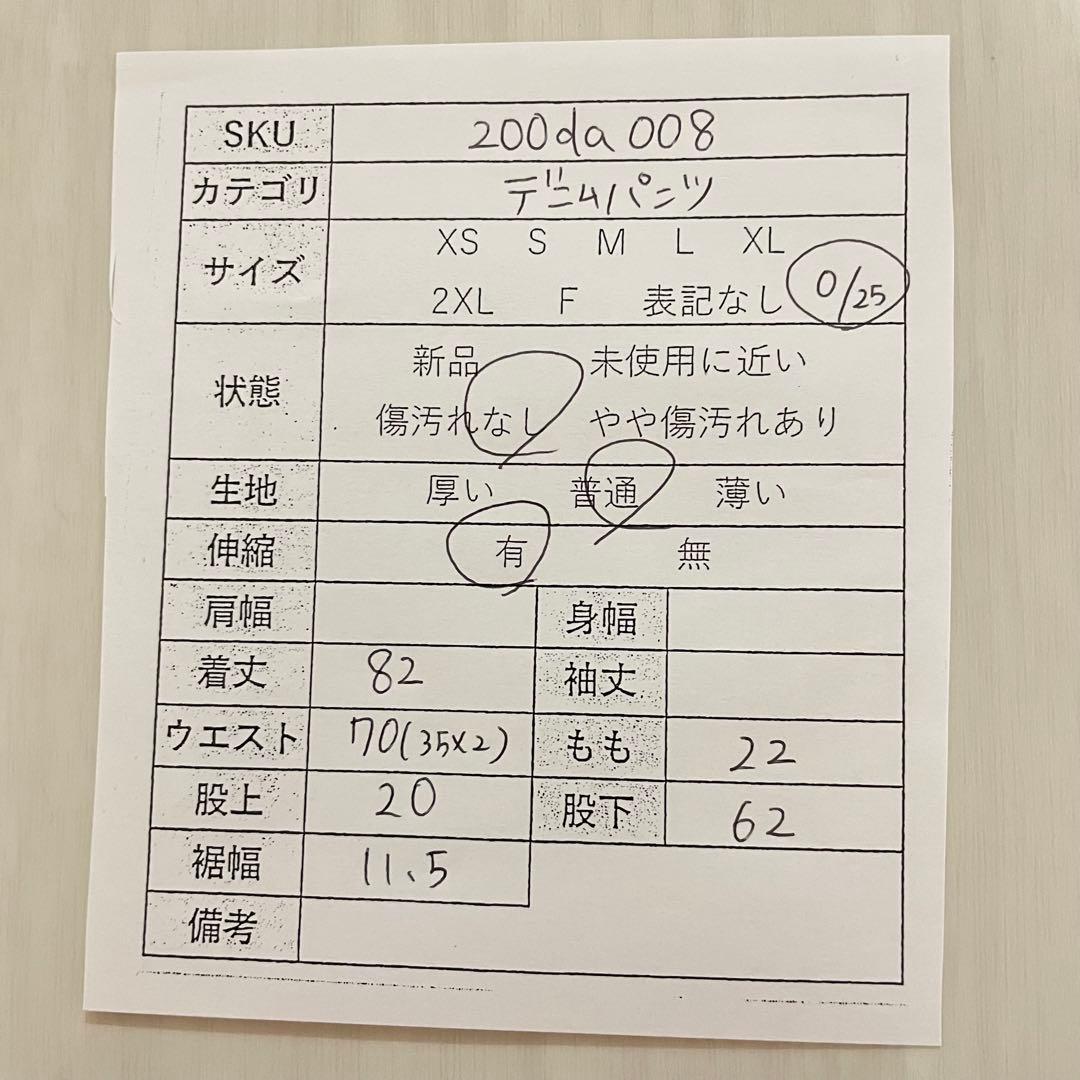 SKU 200da008
カテゴリ デニムパンツ
サイズ XS S M L XL
2XL F 表記なし 0/25
状態 新品 未使用に近い
傷汚れなし やや傷汚れあり
生地 厚い 普通 薄い
伸縮 有 無
肩幅 身幅
着丈 82 袖丈
ウエスト 70(35×2) もも 22
股上 20 股下 62
裾幅 11.5
備考